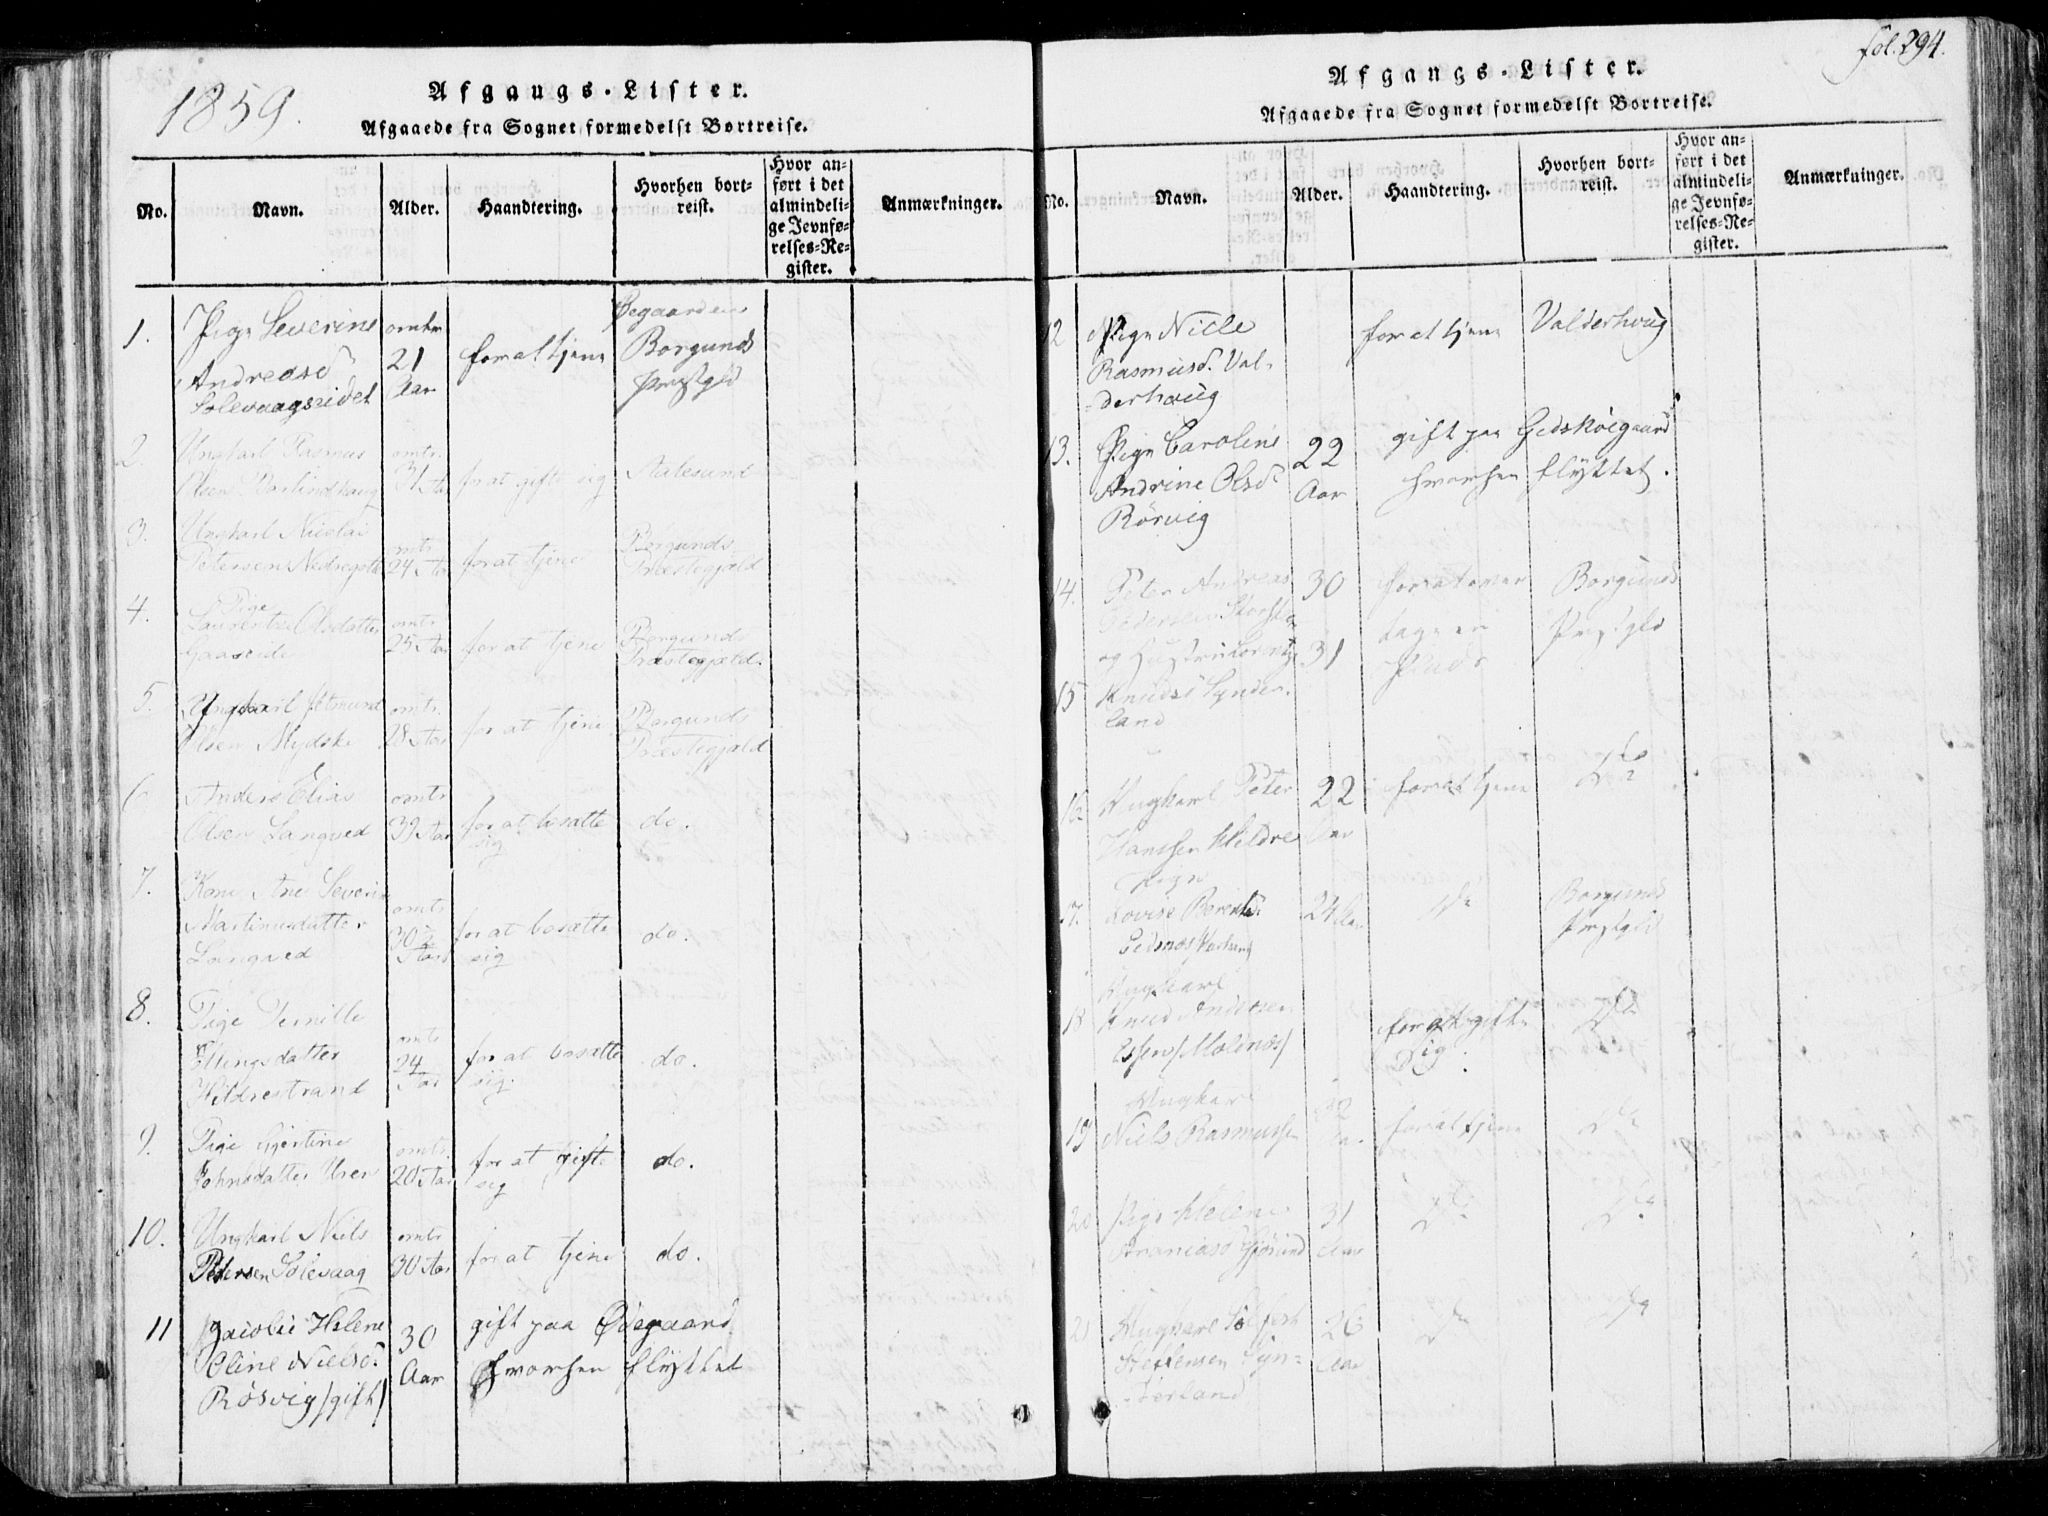 1859.
Afgangs-Lister.
Afgaaede fra Sognet formedelst Bortreise.
No. Navn. Alder. Haandtering. Hvorhen bort-reist. Hvor an-ført i det almindeli-ge Jevnfø-relses-Re-gister. Anmærkninger.
1. Pige Severine omtr Øegaarden
Andreasd 21 for at tjene Borgunds
Solevaagseidet Aar Prestgld
2. Ungkarl Rasmus omtr.
Olsen 31 Aar for at gifte sig Aalesund
3. Ungkarl Nicolai
Petersen omtr 24 Aar for at tjene Borgunds Præstegjæld
4. Pige
Laurentze Olsdatter omtr
Gaaseide 25 Aar for at tjene Borgunds Præstegjæld.
5. Ungkarl omtr.
Olsen 28 Aar for at tjene Borgunds Præstegjæld
6 Anders Elias omtr
Olsen Langved 39 Aar for at bosætte sig do.
7. Kone Ane Severine
Martinusdatter omtr 30½ Aar for at bosætte sig do.
Langved
8. Pige Pernille
Ellingsdatter omtr 24 Aar for at bosætte sig. do.
Hildrestrand
9. Pige omtr.
Johnsdatter Uren 20 Aar for at gifte sig do.
10. Ungkarl Niels omtr
Petersen Solevaag 30 Aar for at tjene do.
11 Helene 30 gift paa Ødegaard
Oline Nielsd. Aar hvorhen flyttet
Rösvig /gift/
fol. 294.
Afgangs-Lister.
Afgaaede fra Sognet formedelst Bortreise.
No. Navn. Alder. Haandtering. Hvorhen bort-reist. Hvor an-ført i det almindeli-ge Jevnfø-relses-Re-gister. Anmærkninger.
12 Pige Nille for at tjene Valderhoug
Rasmusd. Val-
derhoug
13. Pige Caroline 22 gift paa Gidskøegaard
Andrine Olsd Aar hvorhen flyttet.
Rörvig
14. Peter Andreas 30 for at over Borgunds
Pedersen tage en Prestgld
og Hustru 31 Plads
15 Knudsd Synder-
land
16. Ungkarl Peter 22 for at tjene Do
Hanssen Hildre Aar
17. Pige
Lovise Berentsd. 24 Aar Do Borgunds
Prestgld
18 Ungkarl
Knud Andersen for at gifte Do
/Molines/ Sig.
19 Ungkarl 32
Niels Rasmussen Aar for at tjene Do
20 Pige Helene 31 Do Do
Aar
21 Ungkarl 26 Do Do
Steffensen Syn- Aar
derland